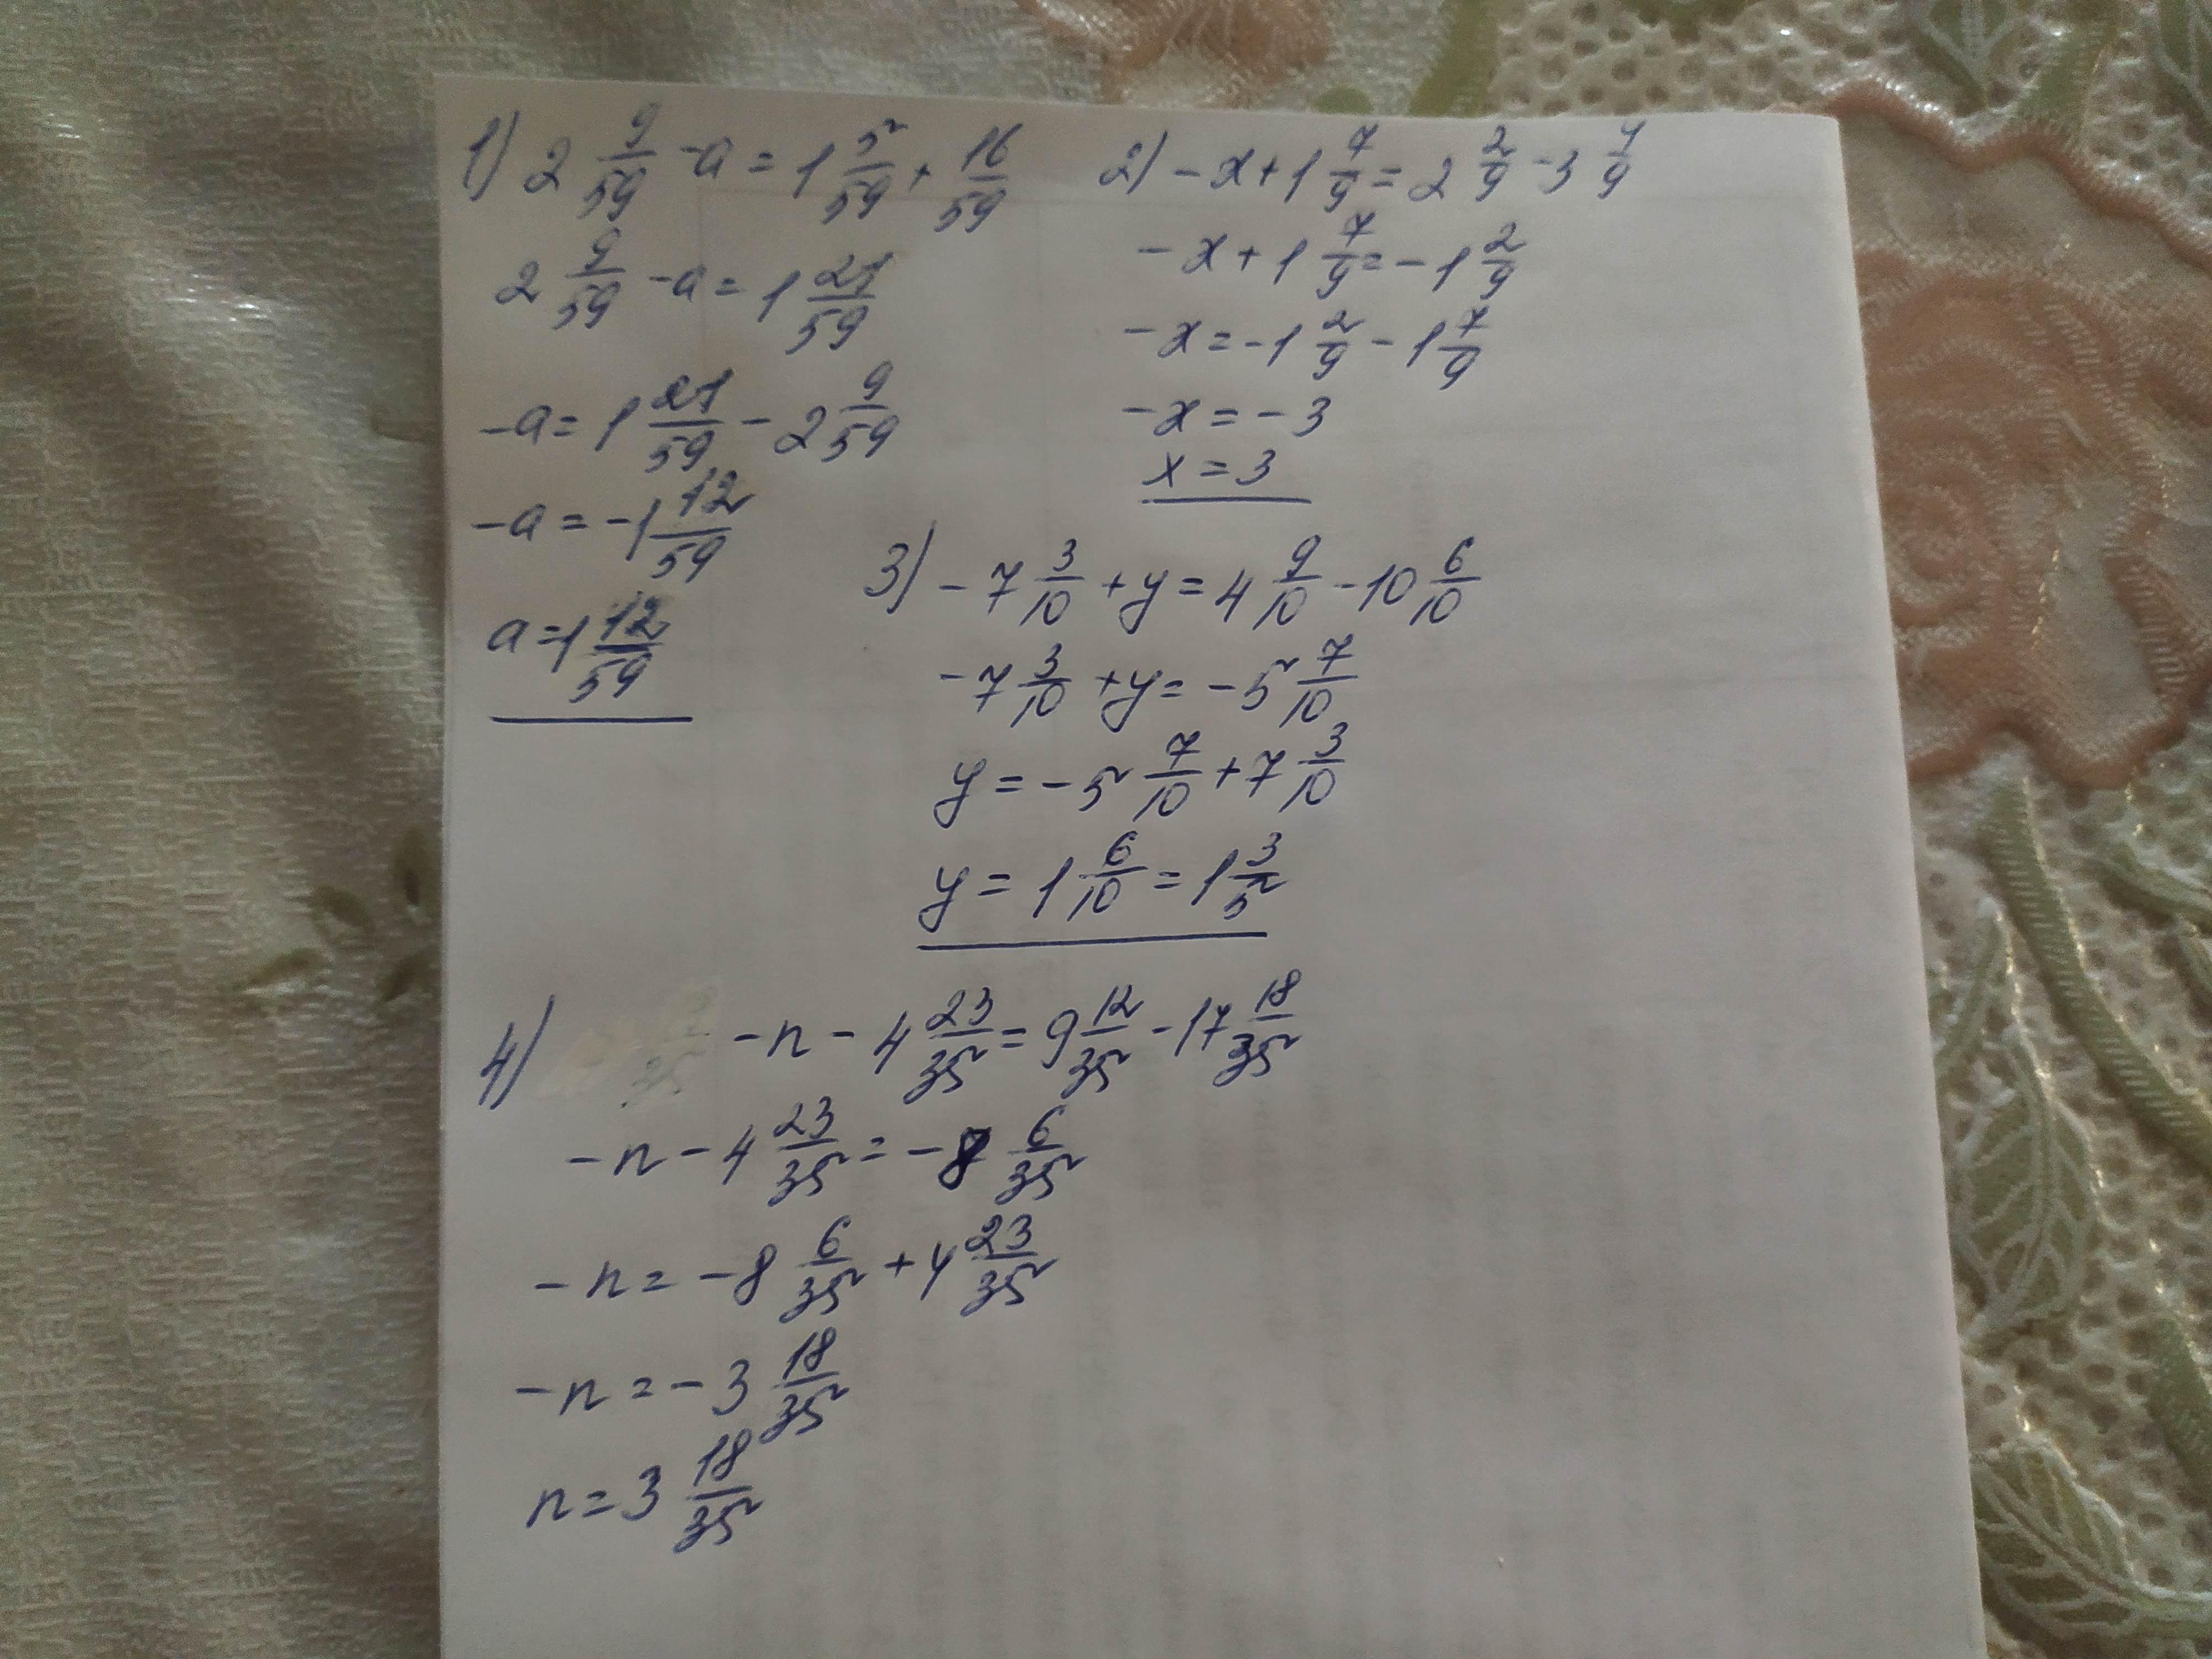 1) 2 9/59 - a = 1 5/59 + 16/59
2 9/59 - a = 1 21/59
-a = 1 21/59 - 2 9/59
-a = -1 12/59
a = 1 12/59
2) - x + 1 7/9 = 2 2/9 - 3 4/9
- x + 1 7/9 = - 1 2/9
- x = - 1 2/9 - 1 7/9
- x = - 3
x = 3
3) - 7 3/10 + y = 4 9/10 - 10 6/10
- 7 3/10 + y = - 5 7/10
y = - 5 7/10 + 7 3/10
y = 1 6/10 = 1 3/5
4) - n - 4 23/35 = 9 12/35 - 17 18/35
- n - 4 23/35 = - 8 6/35
- n = - 8 6/35 + 4 23/35
- n = - 3 18/35
n = 3 18/35